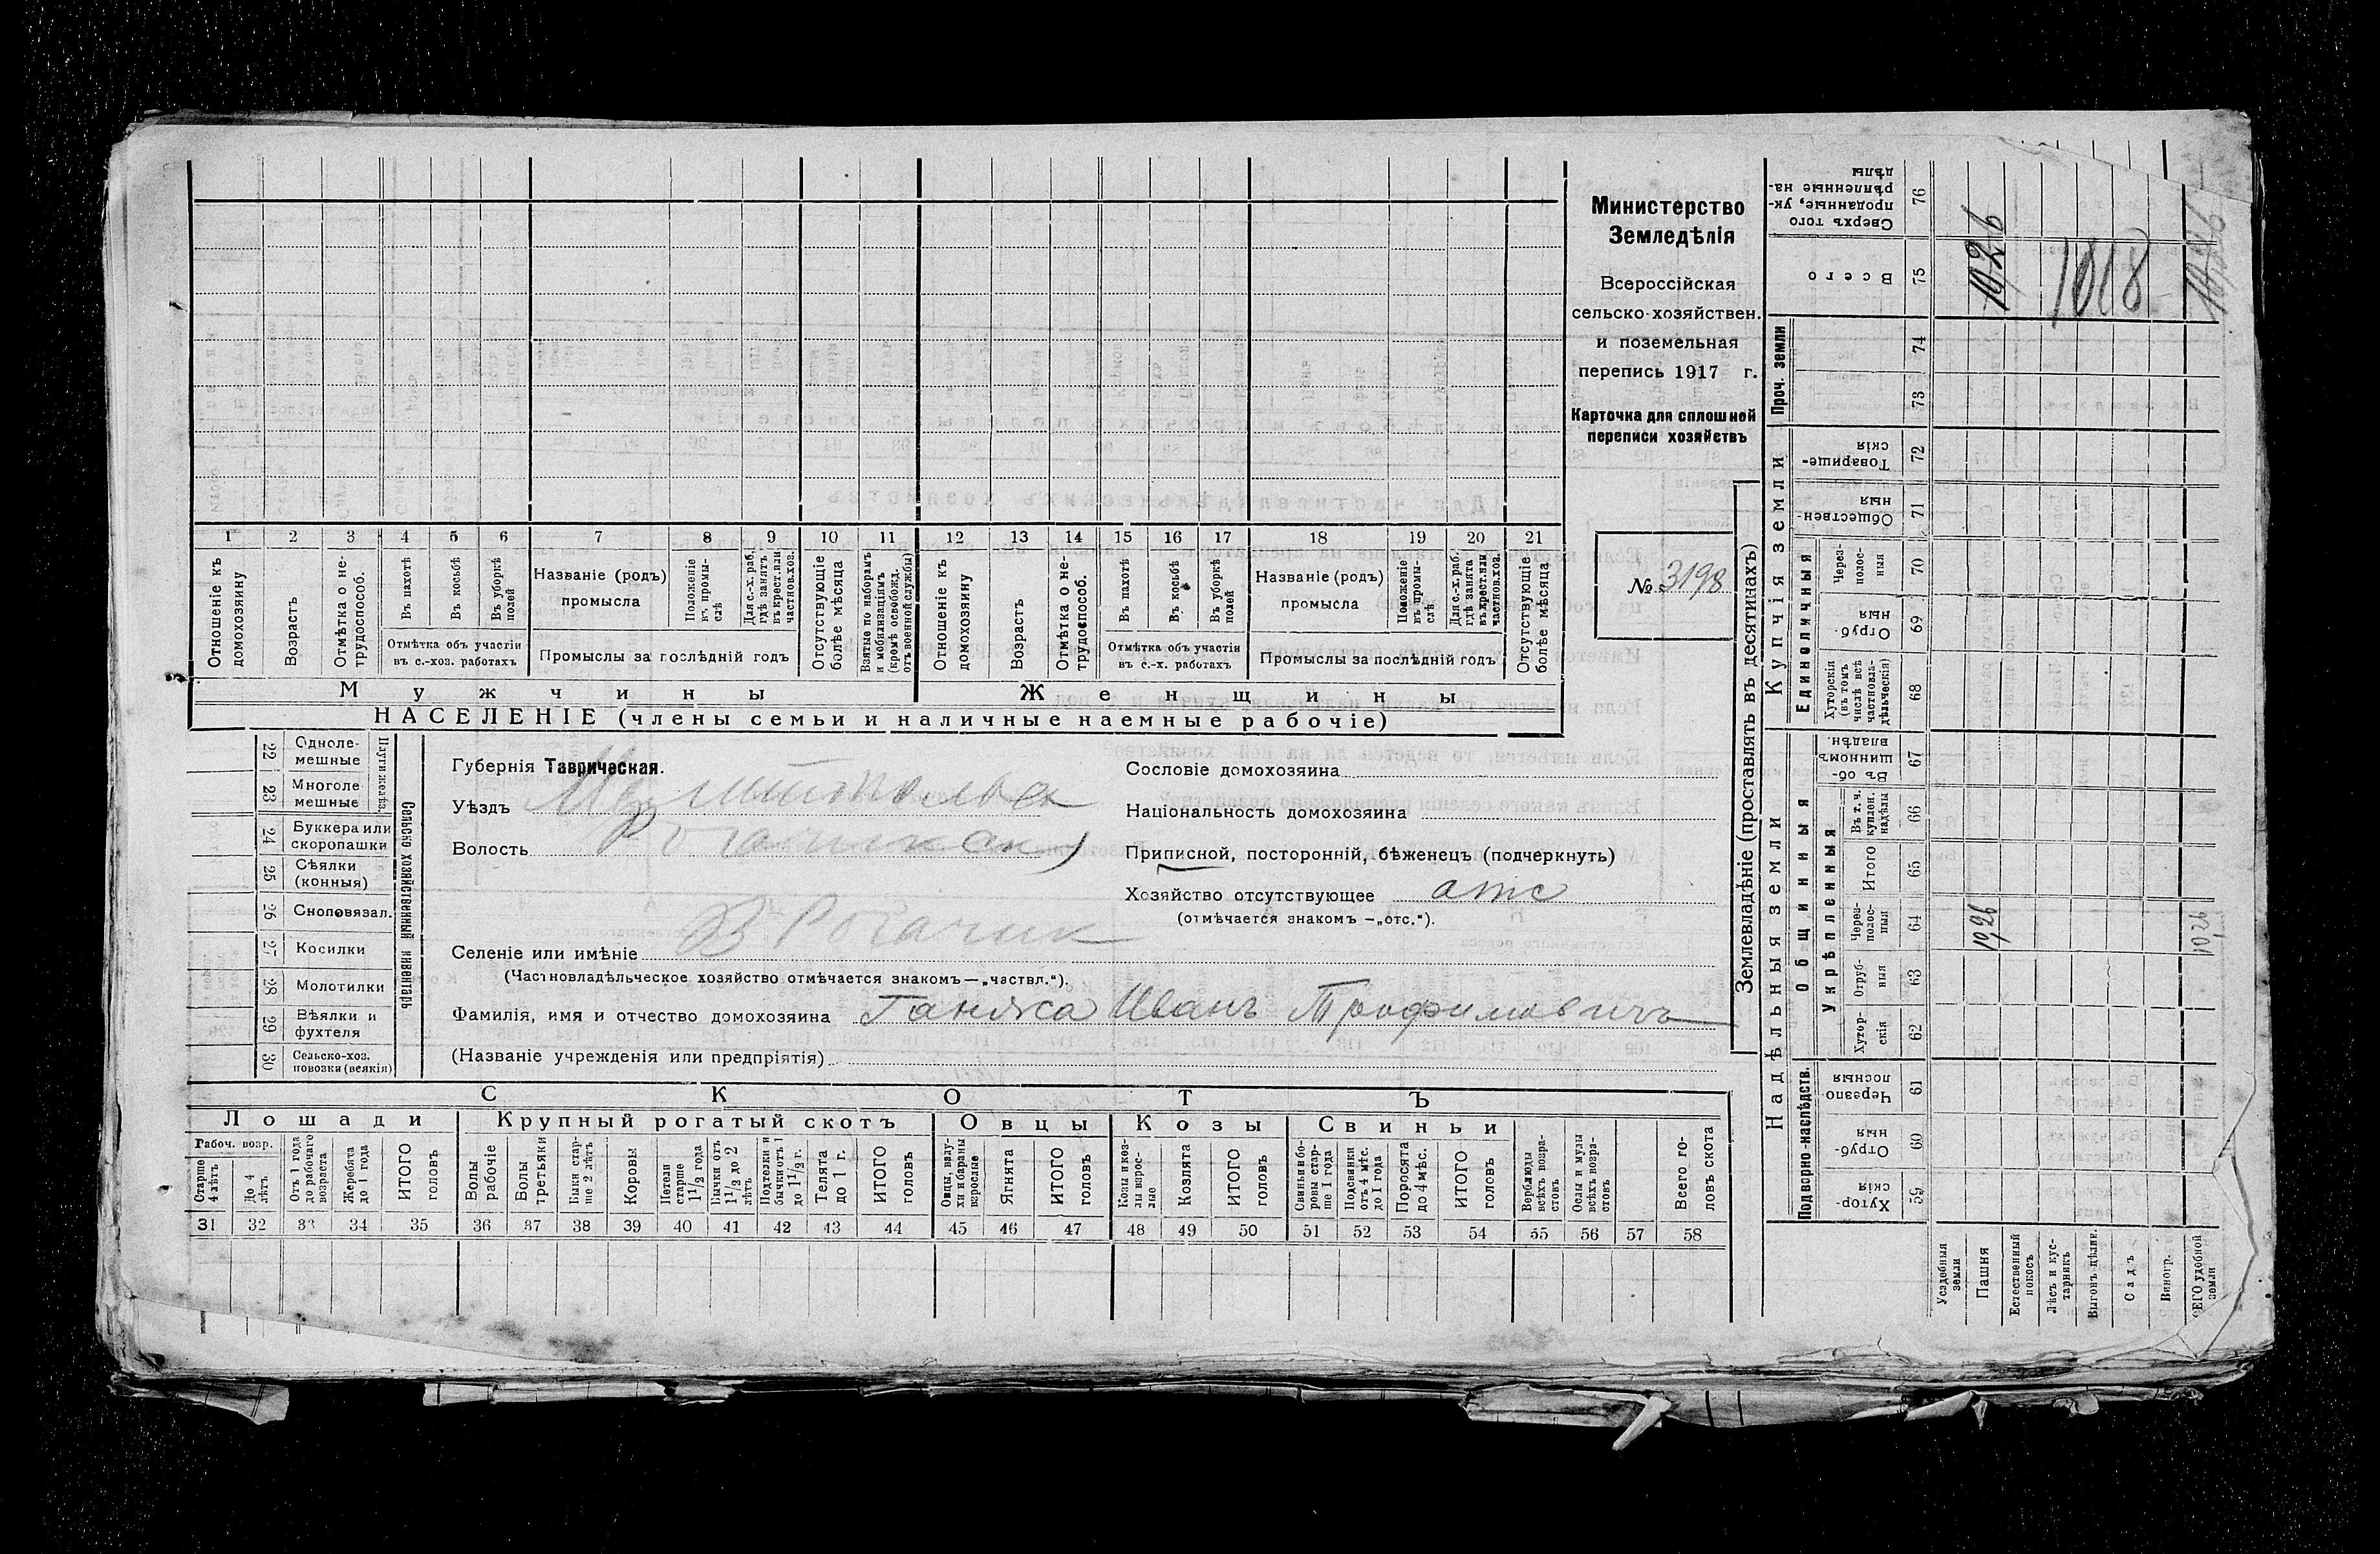 1 2 3 4 5 6 7 8 9 10 11 12 13 14 15 16 17 18 19 20 21
Отношеніе къ домохозяину
Возрастъ
Отмѣтка о нетрудоспособ.
Въ пахотѣ
Въ косьбѣ
Въ уборкѣ полей
Отмѣтка объ участіи
въ с.-хоз. работахъ
Названіе (родъ)
промысла
Положеніе въ промыслѣ
Для с.-х. раб., гдѣ занятъ въ крест. или частнов. хоз.
Промыслы за послѣдній годъ
Отсутствующіе болѣе мѣсяца
Взятые по наборамъ и мобилизаціямъ (кромѣ освобожд. отъ военной службы)
Отношеніе къ домохозяину
Возрастъ
Отмѣтка о нетрудоспособ.
Въ пахотѣ
Въ косьбѣ
Въ уборкѣ полей
Отмѣтка объ участіи
въ с.-х. работахъ
Названіе (родъ)
промысла
Положеніе въ промыслѣ
Для с.-х. раб. гдѣ занята въ крест. или частнов. хоз.
Промыслы за послѣдній годъ
Отсутствующіе болѣе мѣсяца
Мужчины
Женщины
НАСЕЛЕНІЕ (члены семьи и наличные наемные рабочіе)
Министерство
Земледѣлія
Всероссійская
сельско-хозяйствен.
и поземельная
перепись 1917 г.
Карточка для сплошной
переписи хозяйствъ
№ 3198
22 Однолемешные
23 Многолемешные
Плуги желѣз.
24 Буккера или скоропашки
25 Сѣялки (конныя)
26 Сноповязал.
27 Косилки
28 Молотилки
29 Вѣялки и фухтеля
30 Сельско-хоз. повозки (всякія)
Сельско хозяйственный инвентарь
Губернія Таврическая.
Уѣздъ
Волость
Селеніе или имѣніе В Рогачик
(Частновладѣльческое хозяйство отмѣчается знакомъ—„частвл.“).
Фамилія, имя и отчество домохозяина Ганжа Иванъ Трофимовичъ
(Названіе учрежденія или предпріятія)
Сословіе домохозяина
Національность домохозяина
Приписной, посторонній, бѣженецъ (подчеркнуть)
Хозяйство отсутствующее отс
(отмѣчается знакомъ —„отс.“).
СКОТЪ
Лошади
Крупный рогатый скотъ
Овцы
Козы
Свиньи
Рабоч. возр.
Старше 4 лѣтъ
До 4 лѣтъ
Отъ 1 года до рабочаго возраста
Жеребята до 1 года
ИТОГО головъ
Волы рабочіе
Волы третьяки
Быки старше 2 лѣтъ
Коровы
Нетели старше 1 1/2 года
Бычки отъ 1 1/2 до 2 лѣтъ
Подтелки и бычки отъ 1 до 1 1/2 г.
Телята до 1 г.
ИТОГО головъ
Овцы, валухи и бараны взрослые
Ягнята
ИТОГО головъ
Козы и козлы взрослые
Козлята
ИТОГО головъ
Свиньи и боровы старше 1 года
Подсвинки отъ 4 мѣс. до 1 года
Поросята до 4 мѣс.
ИТОГО головъ
Верблюды всѣхъ возрастовъ
Ослы и мулы всѣхъ возрастовъ
Всего головъ скота
31 32 33 34 35 36 37 38 39 40 41 42 43 44 45 46 47 48 49 50 51 52 53 54 55 56 57 58
Землевладѣніе (проставлять въ десятинахъ)
Купчія земли
Надѣльныя земли
Сверхъ того проданные, укрѣпленные надѣлы 76
Всего 75 1926 1018
Проч. земли 74 73
Товарищескія 72
Общественныя 71
Единоличныя
Черезполосныя 70
Отрубныя 69
Хуторскія (въ томъ числѣ всѣ частновладѣльческія) 68
Общинныя
Въ общинномъ владѣн. 67
Укрѣпленныя
Въ т. ч. куплен. надѣлы 66
Итого 65
Черезполосныя 64 1926 1926
Отрубныя 63
Хуторскія 62
Подворно-наслѣдств.
Черезполосныя 61
Отрубныя 60
Хуторскія 59
Усадебныя земли
Пашня
Естественный покосъ
Лѣсъ и кустарникъ
Выгонъ цѣлин.
Садъ
Виногр.
ВСЕГО удобной земли